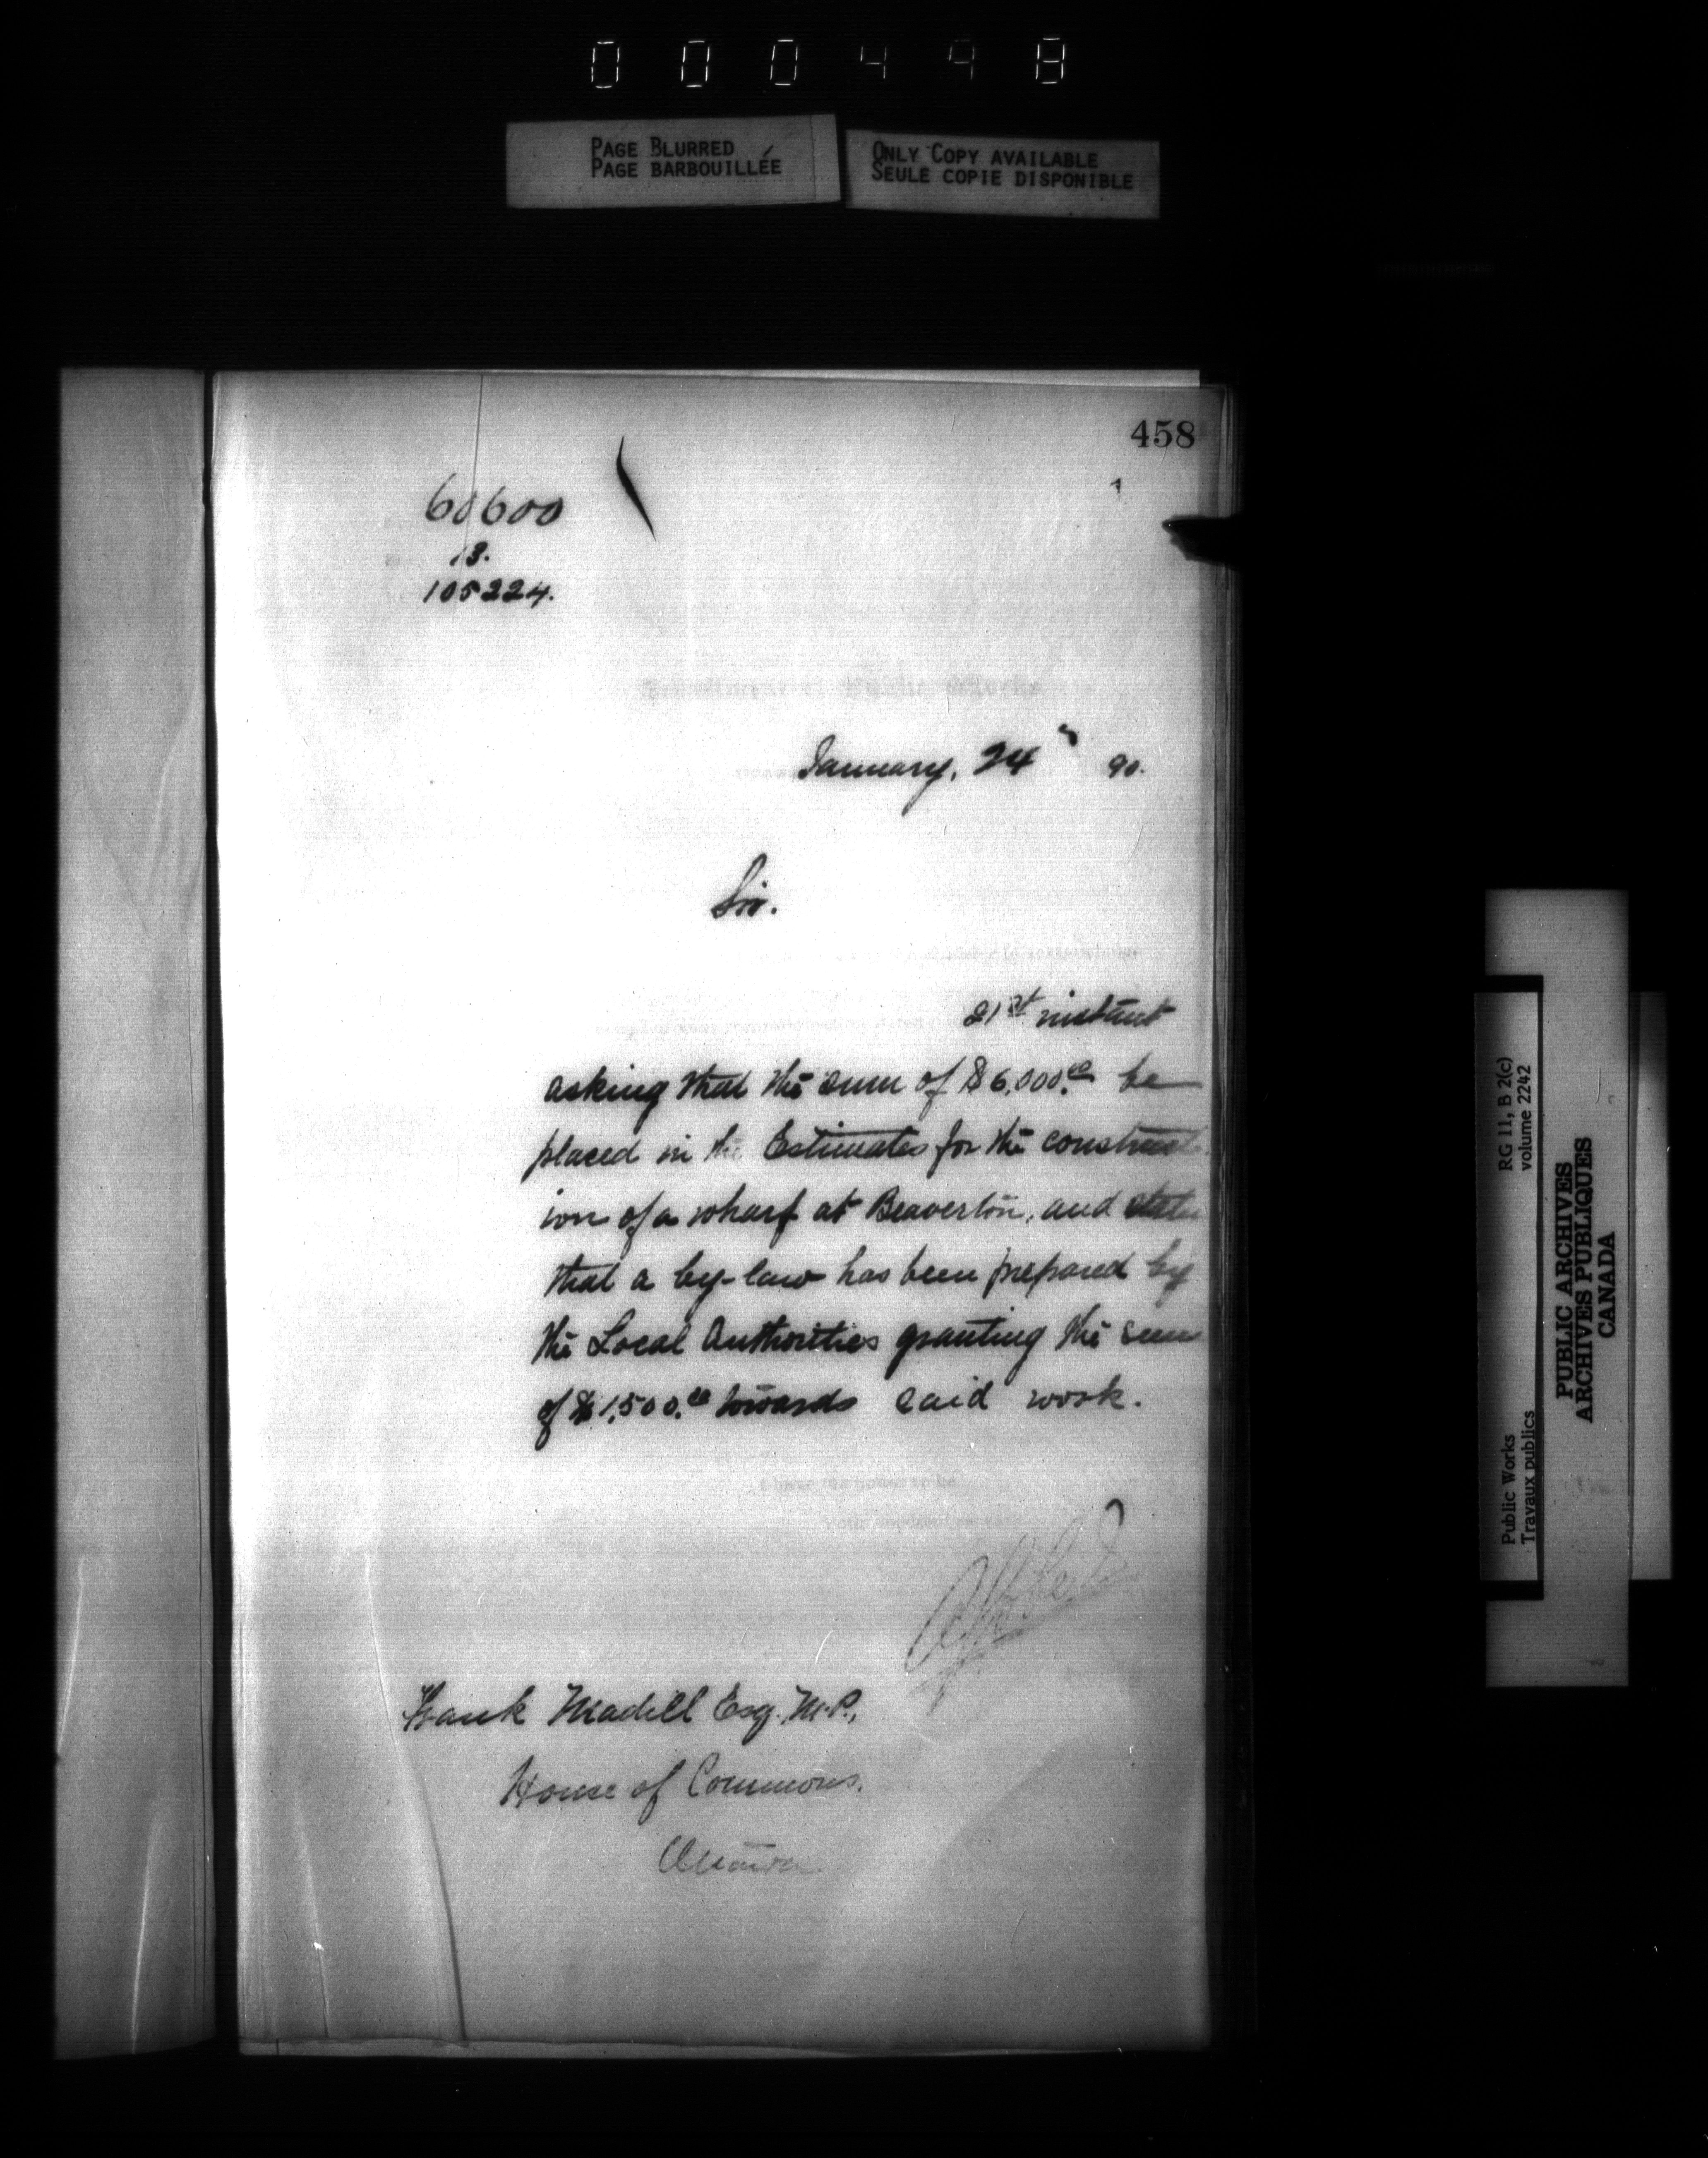 000498
PAGE BLURRED
PAGE BARBOUILLÉE
ONLY COPY AVAILABLE
SEULE COPIE DISPONIBLE
458
60600
13.
105224.
Department of Public Works
January, 24th 90.
Sir.
21st instant
asking that the sum of $6,000.00 be
placed in the Estimates for the construct-
ion of a wharf at Beaverton, and state
that a by-law has been prepared by
the Local Authorities granting the sum
of $1,500.00 towards said work.
I have the honor to be
Frank Madill Esq. M.P.,
House of Commons.
Ottawa
Public Works
Travaux publics
RG 11, B 2(c)
volume 2242
PUBLIC ARCHIVES
ARCHIVES PUBLIQUES
CANADA